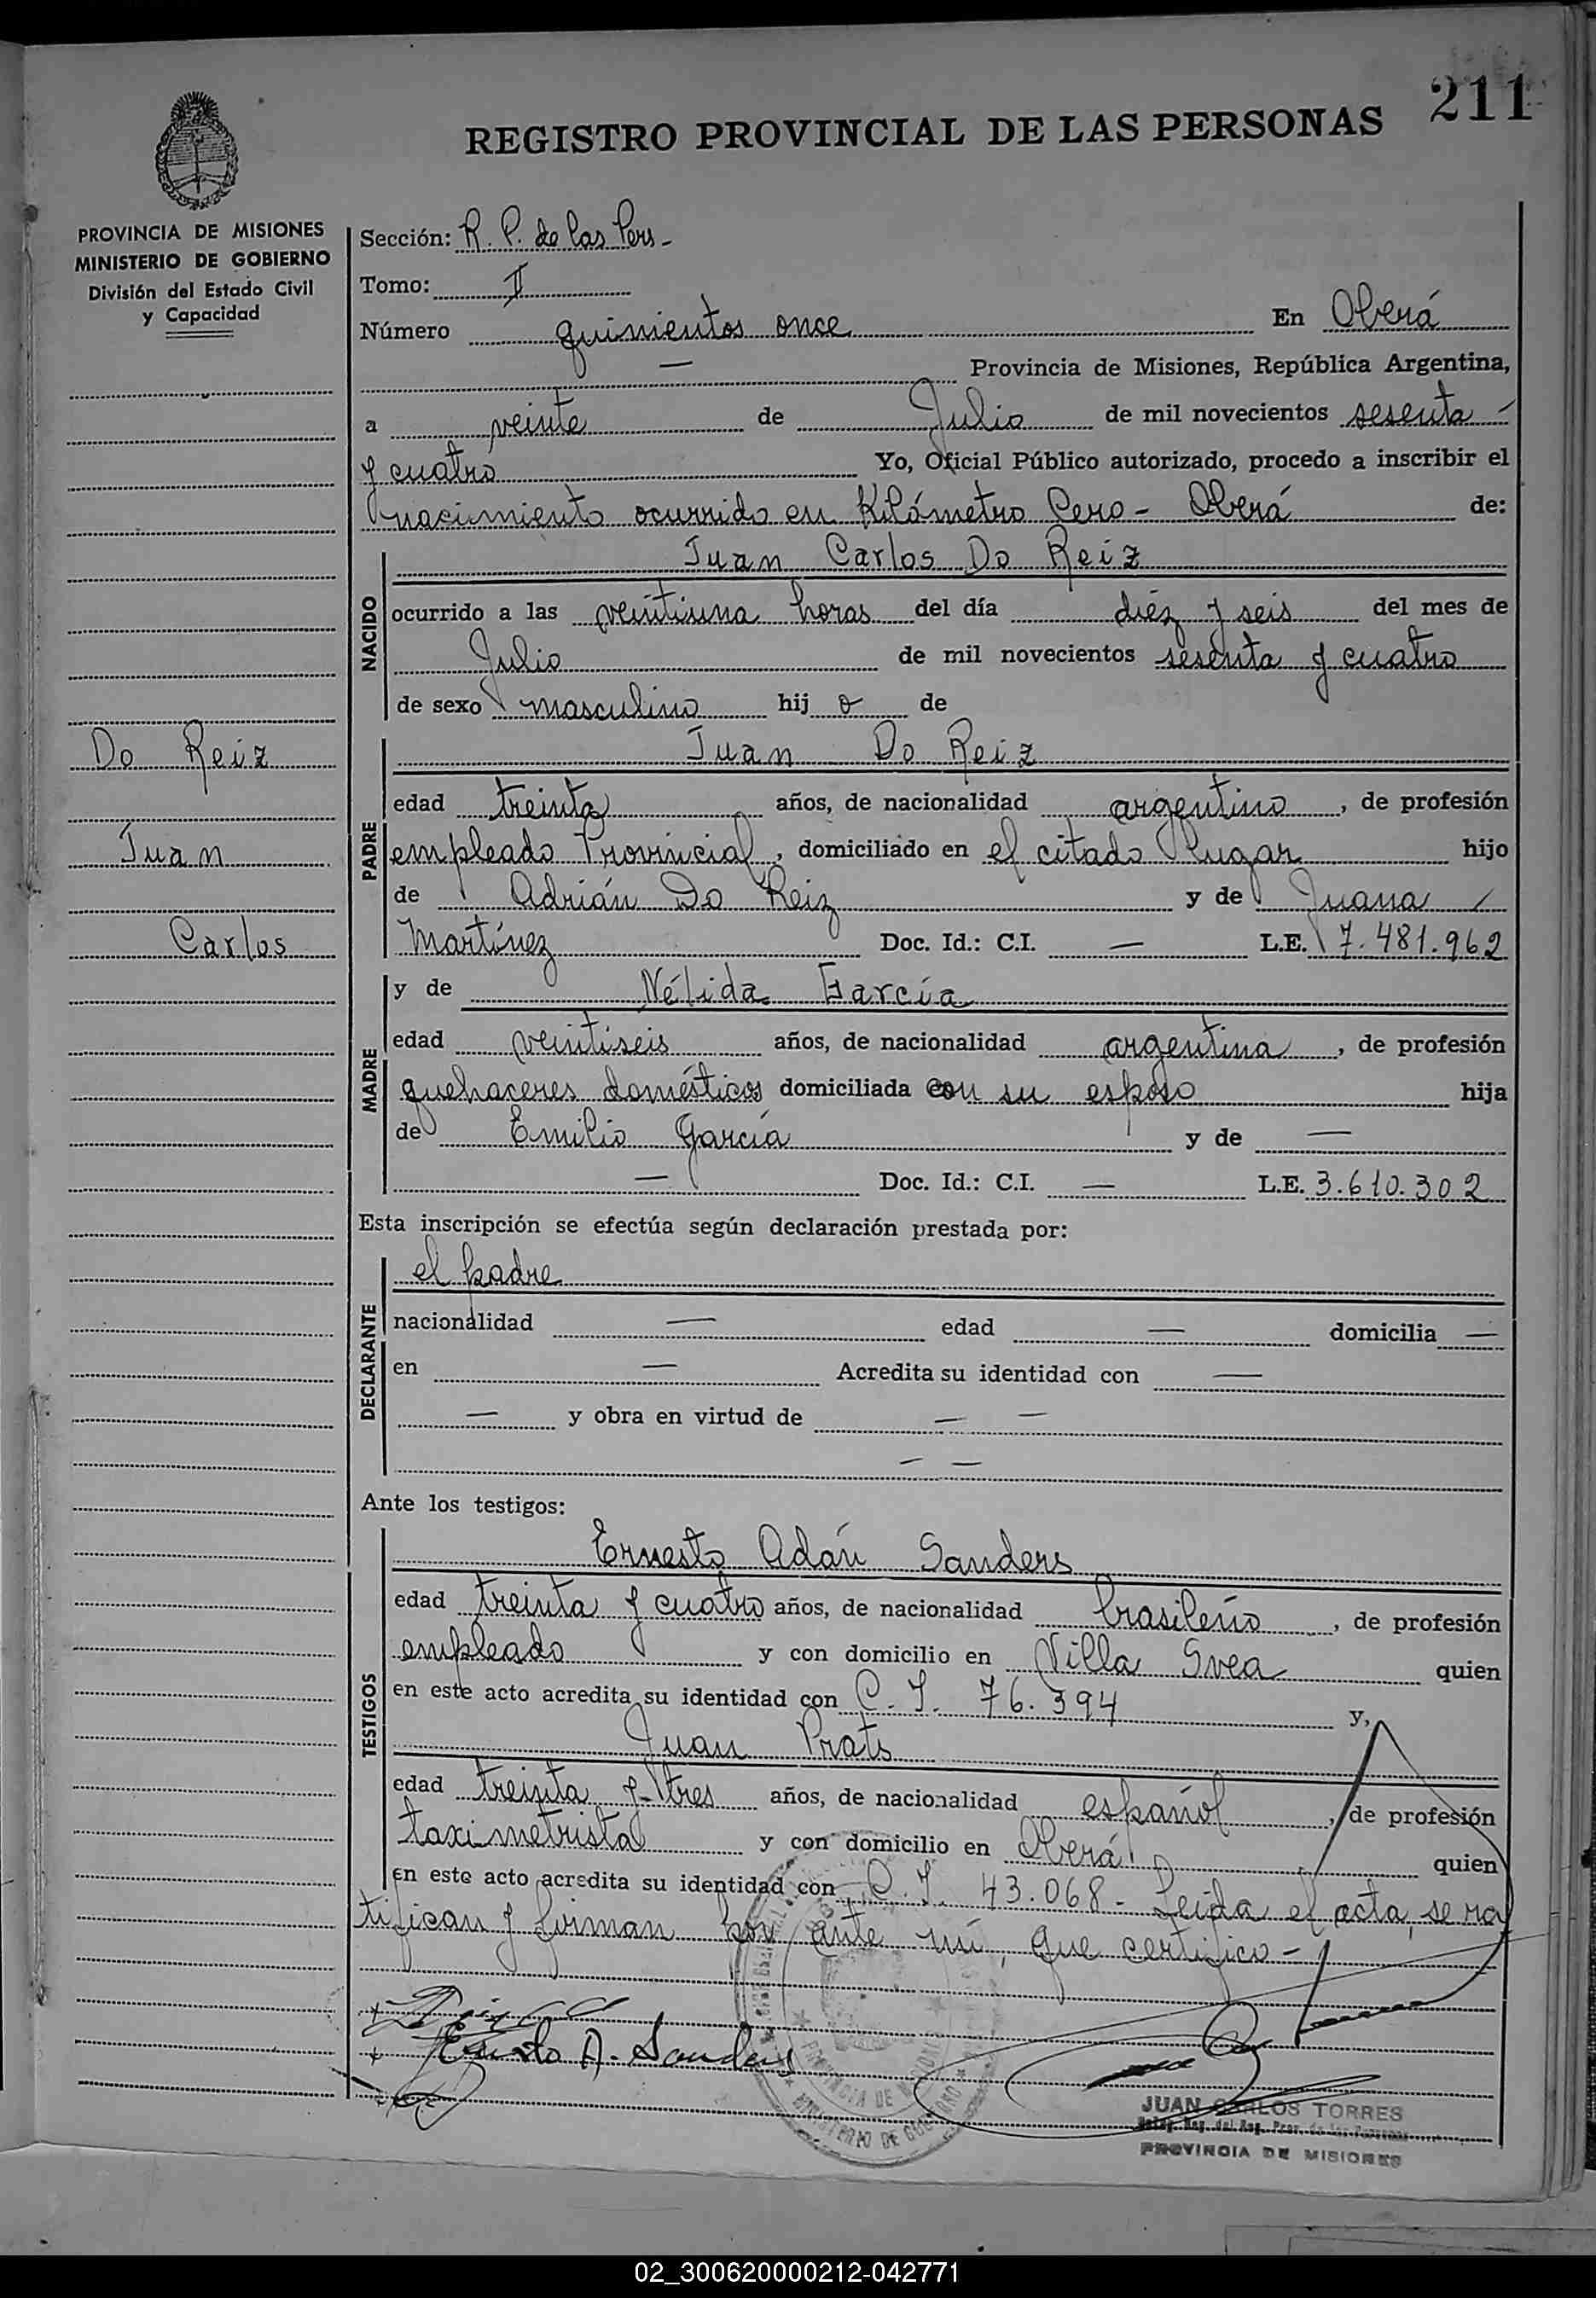 211
REGISTRO PROVINCIAL DE LAS PERSONAS
PROVINCIA DE MISIONES
MINISTERIO DE GOBIERNO
División del Estado Civil
y Capacidad
Sección: R. P. de las Pers-
Tomo: II
Número quinientos once En Oberá
— Provincia de Misiones, República Argentina,
a veinte de Julio de mil novecientos sesenta
y cuatro Yo, Oficial Público autorizado, procedo a inscribir el
nacimiento ocurrido en Kilómetro Cero - Oberá de:
NACIDO
Juan Carlos Do Reiz
ocurrido a las veintiuna horas del día diéz y seis del mes de
Julio de mil novecientos sesenta y cuatro
de sexo masculino hij o de
Do Reiz
Juan
Carlos
PADRE
Juan Do Reiz
edad treinta años, de nacionalidad argentino, de profesión
empleado Provincial, domiciliado en el citado lugar hijo
de Adrián Do Reiz y de Juana
Martínez Doc. Id.: C.I. — L.E. 7.481.962
MADRE
y de Nélida García
edad veintiseis años, de nacionalidad argentina, de profesión
quehaceres domésticos domiciliada con su esposo hija
de Emilio García y de —
— Doc. Id.: C.I. — L.E. 3.610.302
Esta inscripción se efectúa según declaración prestada por:
DECLARANTE
el padre
nacionalidad — edad — domicilia —
en — Acredita su identidad con —
— y obra en virtud de — —
— —
Ante los testigos:
TESTIGOS
Ernesto Adán Sanders
edad treinta y cuatro años, de nacionalidad brasileño, de profesión
empleado y con domicilio en Villa Svea quien
en este acto acredita su identidad con C. I. 76.394 y,
Juan Prats
edad treinta y tres años, de nacionalidad español, de profesión
taximetrista y con domicilio en Oberá quien
en este acto acredita su identidad con C. I. 43.068 - Leida el acta, se ra
tifican y firman por ante mí, que certifico -
Ernesto A. Sanders
PROVINCIA DE MISIONES
MINISTERIO DE GOBIERNO
JUAN CARLOS TORRES
PROVINCIA DE MISIONES
02_300620000212-042771